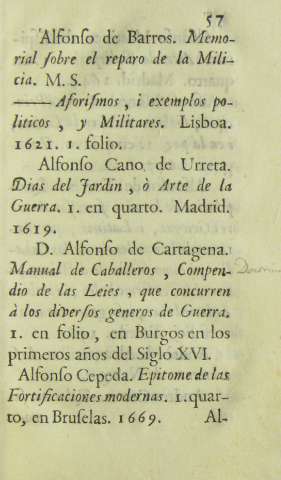 57
Alfonſo de Barros. Memo-
rial ſobre el reparo de la Mili-
cia. M. S.
—— Aforiſmos, i exemplos po-
liticos, y Militares. Lisboa.
1621. 1. folio.
Alfonſo Cano de Urreta.
Dias del Jardin, ò Arte de la
Guerra. 1. en quarto. Madrid.
1619.
D. Alfonſo de Cartagena.
Manual de Caballeros, Compen-
dio de las Leies, que concurren
à los diverſos generos de Guerra.
1. en folio, en Burgos en los
primeros años del Siglo XVI.
Alfonſo Cepeda. Epitome de las
Fortificaciones modernas. 1. quar-
to, en Bruſelas. 1669. Al-